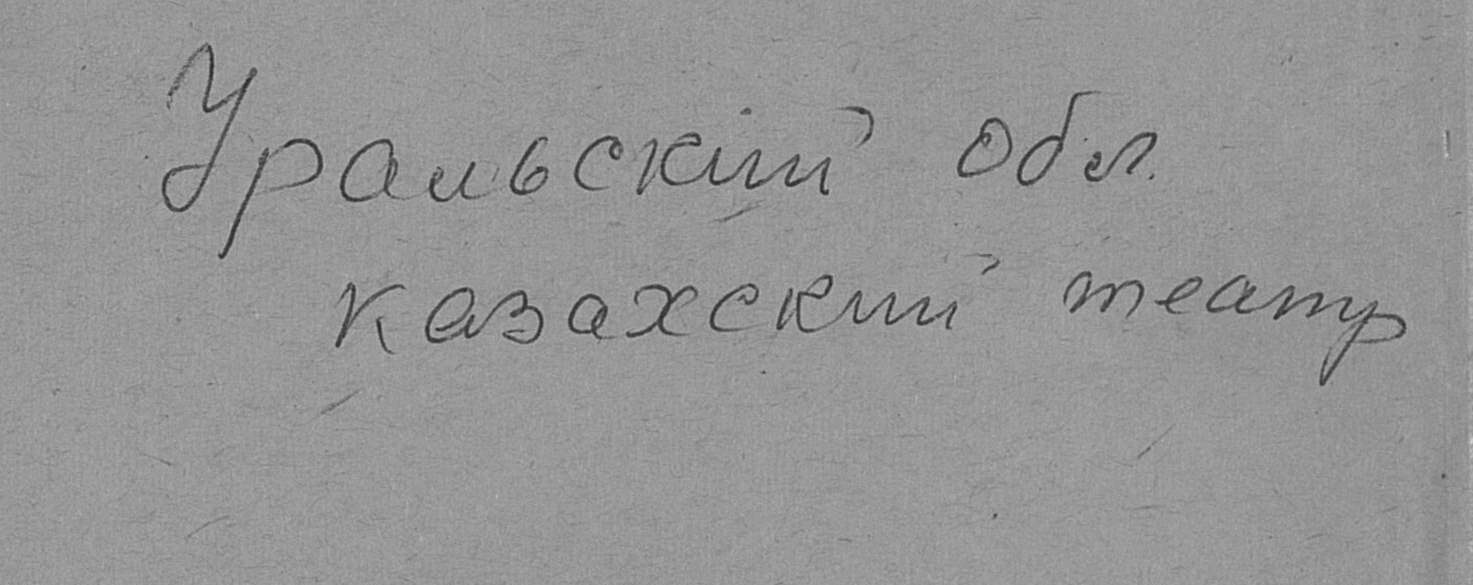 Уральский обл.
казахский театр